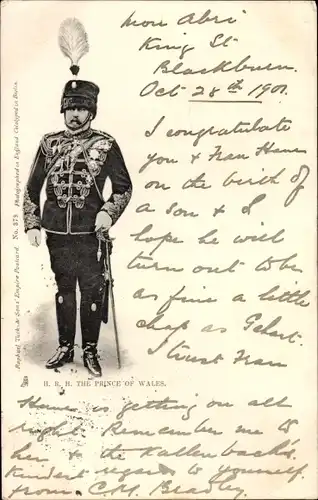 Mon Abri
King St
Blackburn.
Oct 28th 1901.
I congratulate
you & Frau Hanes
on the birth of
a son & I
hope he will
turn out to be
as fine a little
chap as
I trust Frau
H. R. H. THE PRINCE OF WALES.
Hanes is getting on all
right. Remember me to
her & the Kallenbach's.
Kindest regards to yourself.
from C.M. Beasley.
Raphael Tuck & Sons' Empire Postcard No. 273 Photographed in England, Collotyped in Berlin.